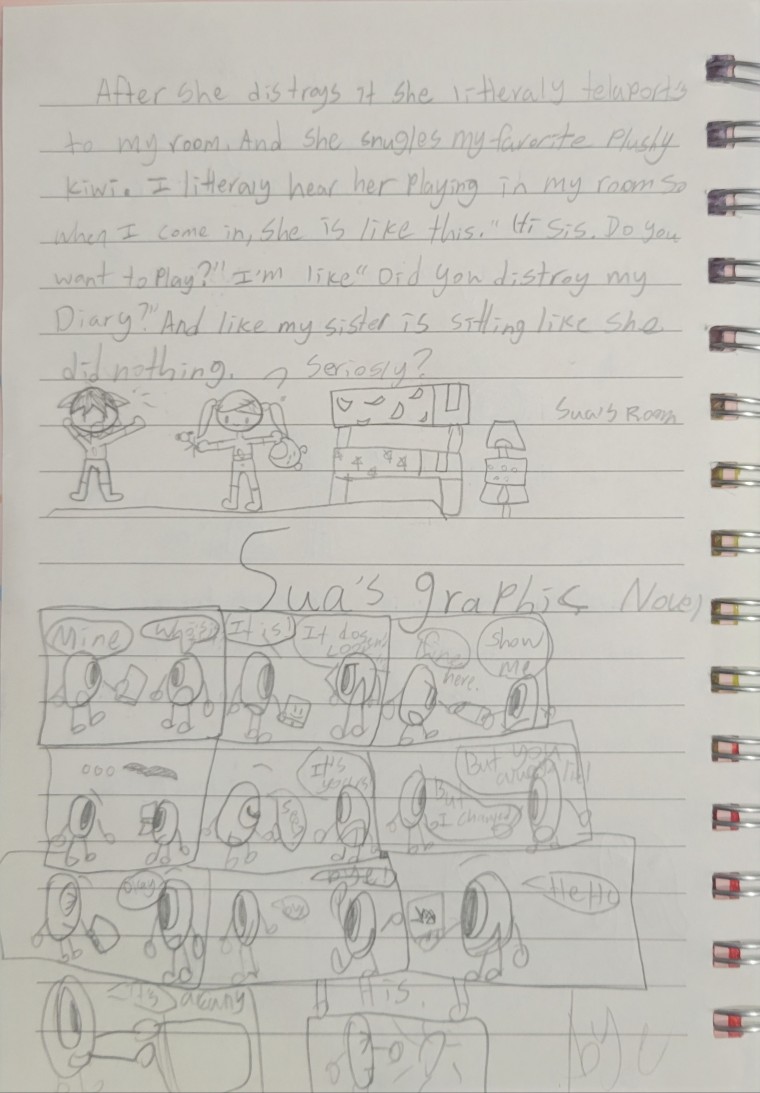 After she distroys it she litteraly teleports
to my room. And she snugles my favorite Plushy
kiwi. I litteraly hear her playing in my room so
when I come in, she is like this." Hi sis. Do you
want to play?" I'm like" Did you distroy my
Diary?" And like my sister is sitting like she
did nothing.
Seriosly?
Sua's Room
Sua's graphic Novel
Mine
It is!
It
Show
me
here.
ooo
It's
But you
But
I changed
Okay
Bye!
Hello
His.
by